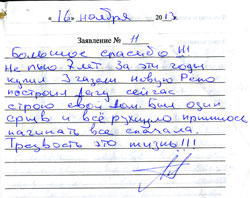 « 16 » ноября 2013
Заявление № 11
Большое спасибо !!!
Не пью 7 лет За эти годы
купил 3 газели новую Рено
построил дачу сейчас
строю свой дом. Был один
срыв и всё рухнуло пришлось
начинать все сначала.
Трезвость это жизнь!!!